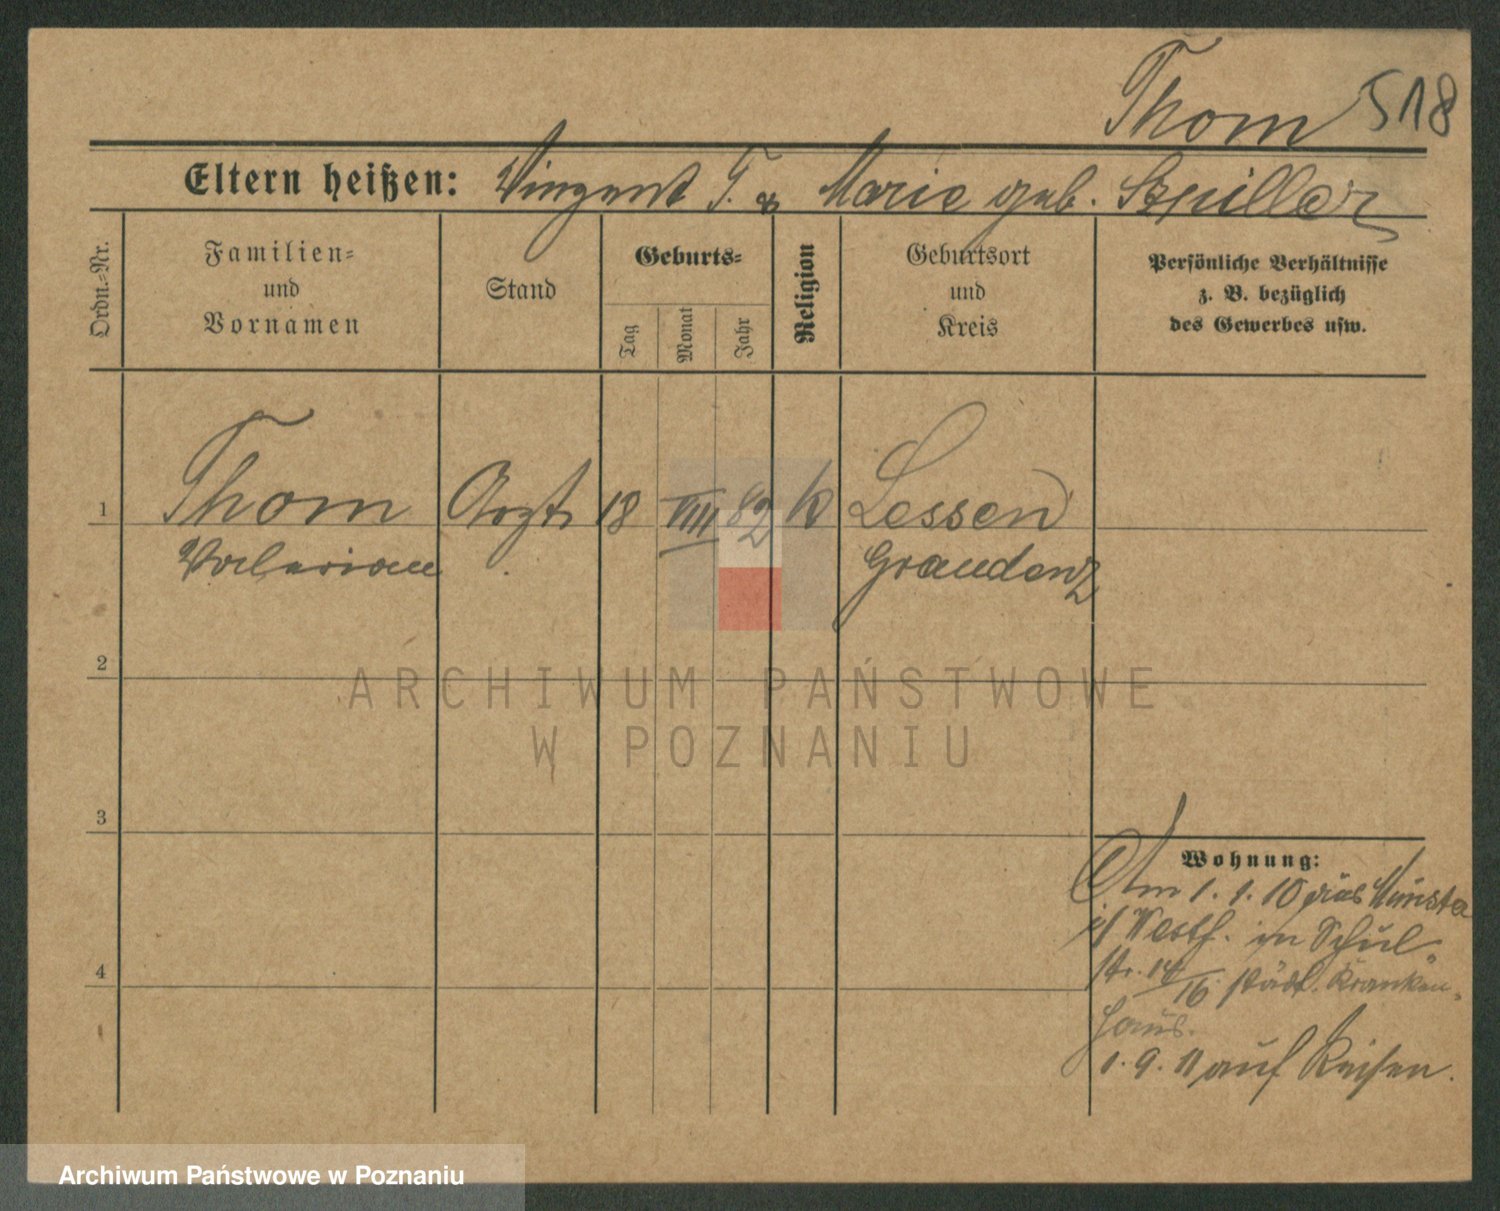 Thom 518
Eltern heißen: Vinzent T. & Marie geb. Szpiller
Ordn.-Nr.
Familien=
und
Vornamen
Stand
Geburts=
Tag
Monat
Jahr
Religion
Geburtsort
und
Kreis
Persönliche Verhältnisse
z. B. bezüglich
des Gewerbes usw.
1 Thom Arzt 18 VIII 82 k Lessen
Valerian Graudenz
2
ARCHIWUM PAŃSTWOWE
W POZNANIU
3
Wohnung:
Am 1. 1. 10 aus Münster
i/ Westf. in Schul-
str. 14/16 städt. Kranken-
haus.
1. 9. 11 auf Reisen.
4
Archiwum Państwowe w Poznaniu